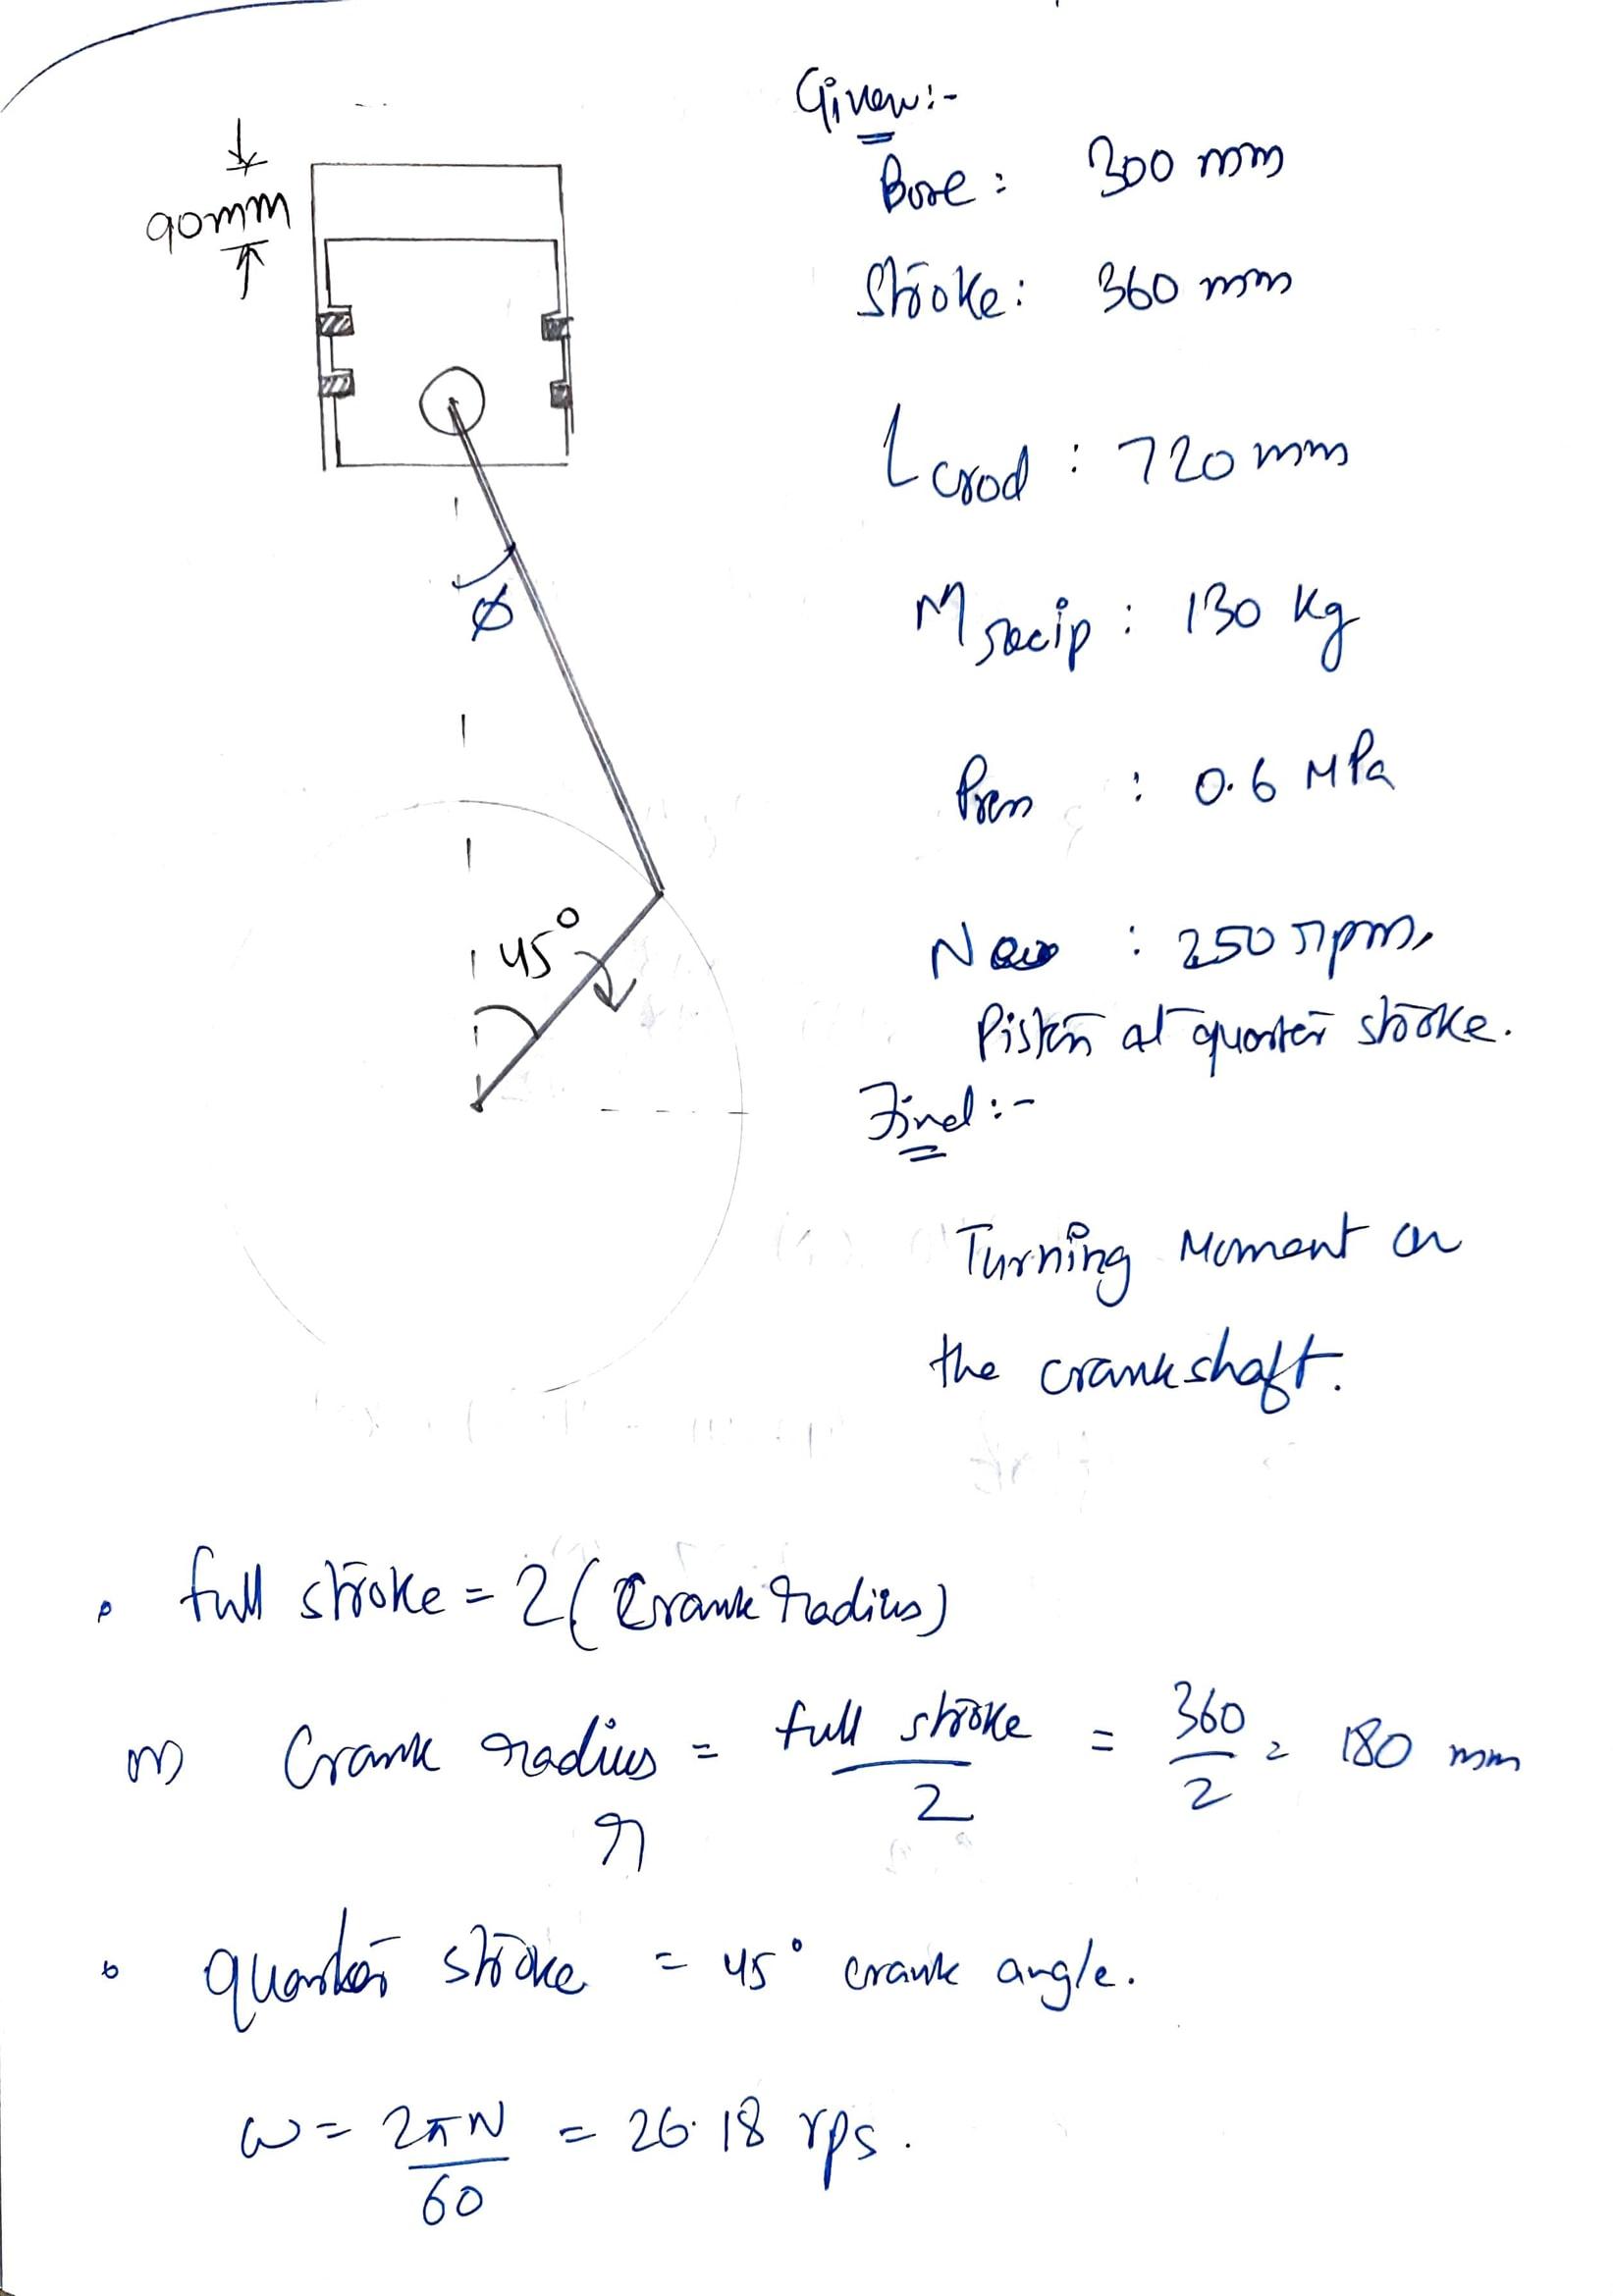 Given:-
Bore: 300 mm
90mm
Stroke: 360 mm
Lcrod : 720 mm
Mrecip : 130 kg
ø
Pres : 0.6 MPa
45°
N : 250 rpm.
Piston at quarter stroke.
Find:-
Turning Moment on
the crankshaft.
• full stroke = 2(Crank radius)
Crank radius = full stroke / 2 = 360 / 2 = 180 mm
r
• quarter stroke = 45° crank angle.
ω = 2πN / 60 = 26.18 rps.